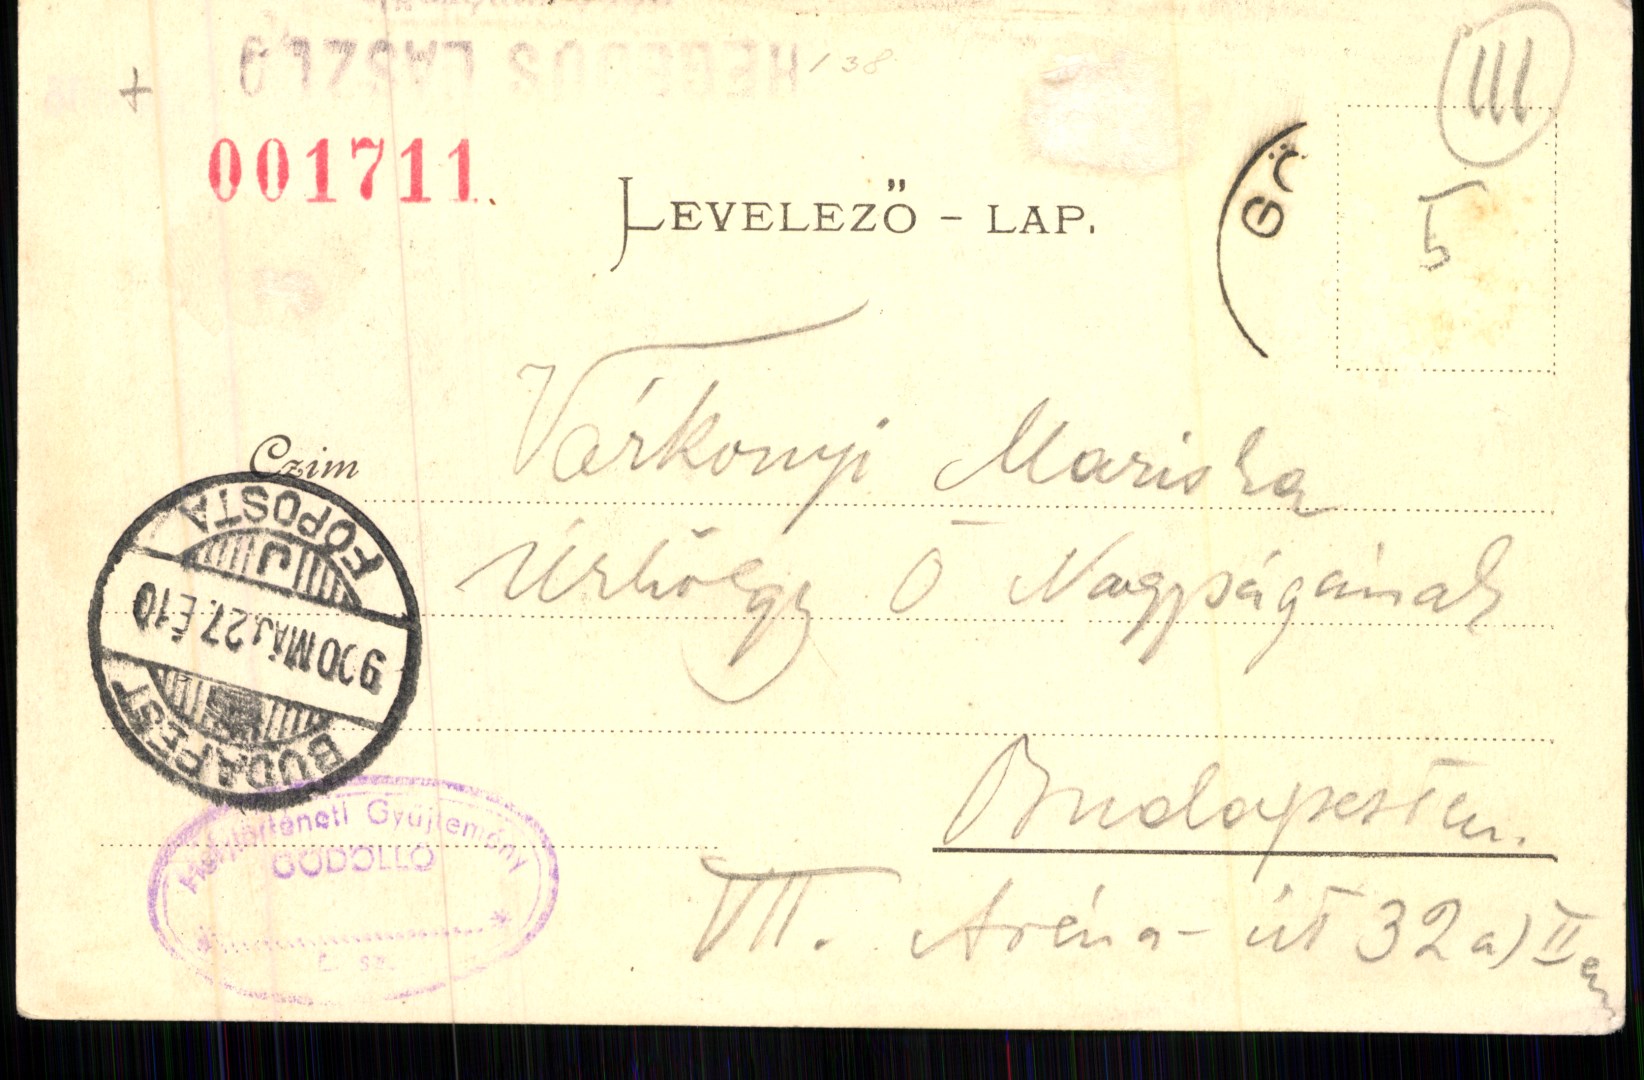 HEGEDŰS LÁSZLÓ
138
+
III
001711.
LEVELEZŐ - LAP.
GÖ
5
Czim
Várkonyi Mariska
Úrhölgy Ő Nagyságának
Budapesten.
VII. Aréna-út 32a) II em
BUDAPEST FŐPOSTA
J
900 MÁJ. 27. É 10
Helytörténeti Gyűjtemény
GÖDÖLLŐ
L. sz.